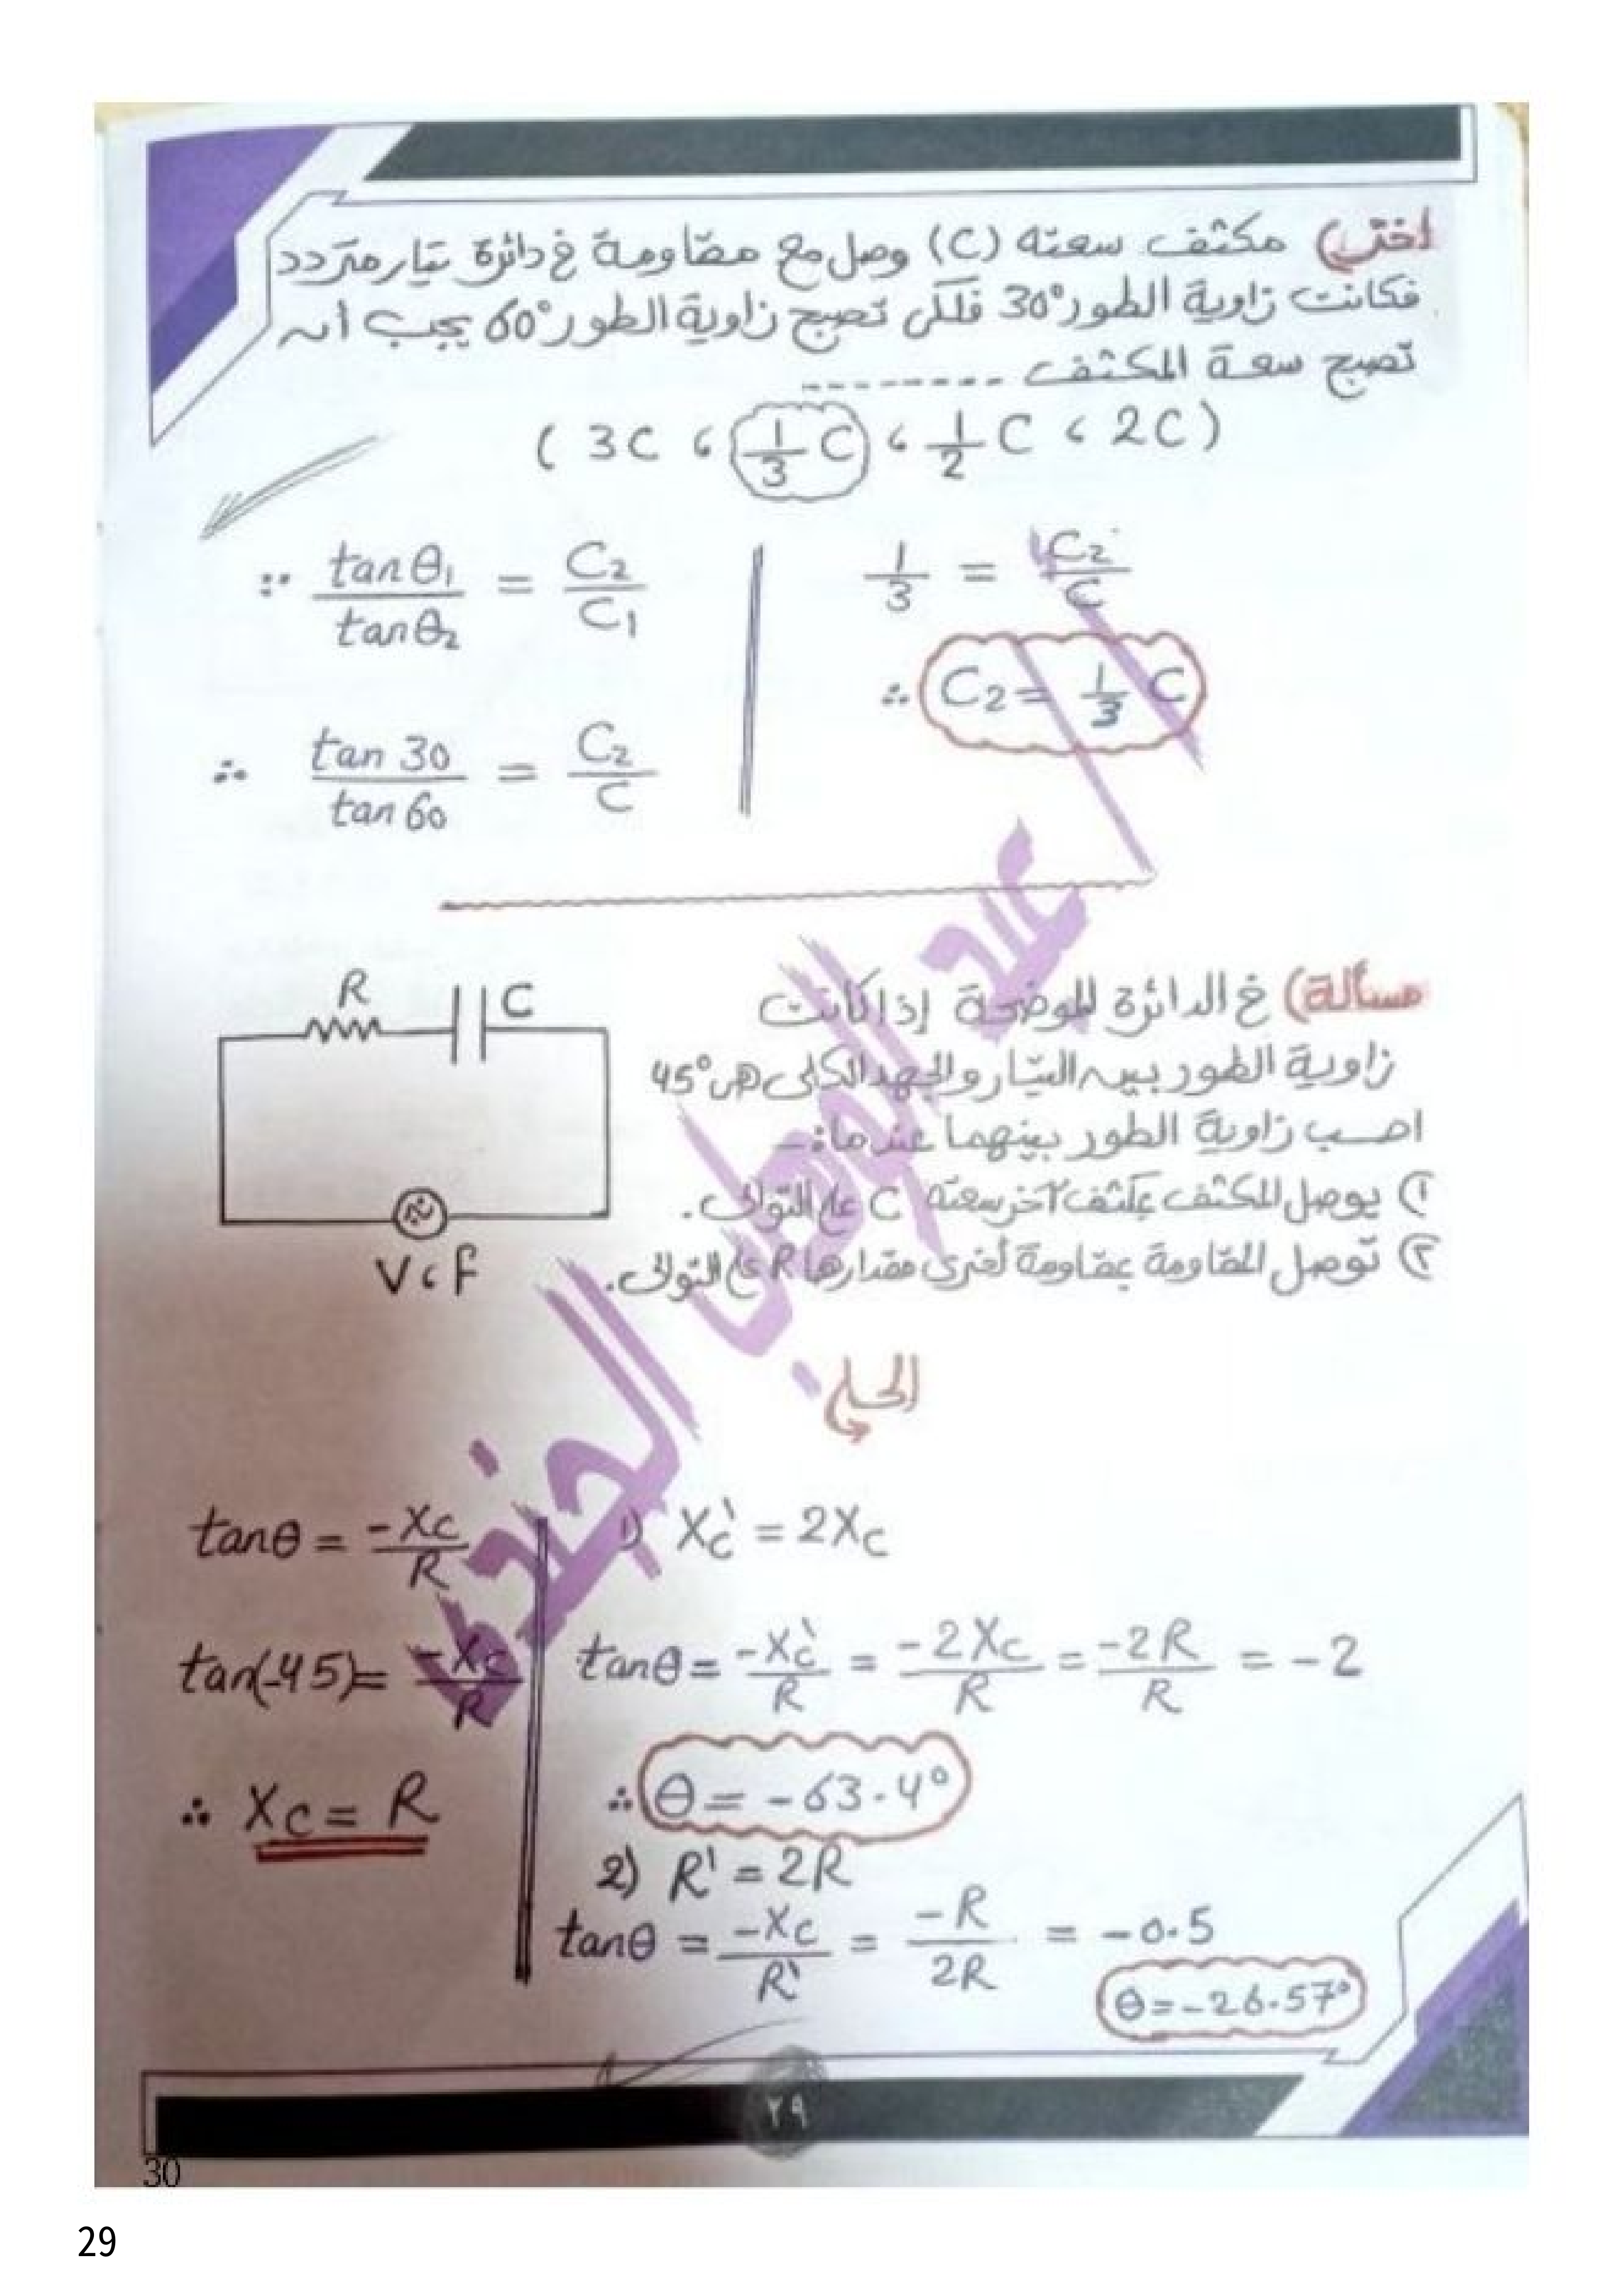 اختر) مكثف سعته (C) وصل مع مقاومة في دائرة تيار متردد
فكانت زاوية الطور 30° فلكى تصبح زاوية الطور 60° يجب أن
تصبح سعة المكثف --------
( 3C ، 1/3 C ، 1/2 C ، 2C )
∵ tanθ1/tanθ2 = C2/C1
∴ tan 30/tan 60 = C2/C
1/3 = C2/C
∴ C2 = 1/3 C
مسألة) في الدائرة الموضحة إذا كانت
زاوية الطور بين التيار والجهد الكلى هى 45°
احسب زاوية الطور بينهما عندما :-
① يوصل المكثف بمكثف آخر سعته C على التوالى.
② توصل المقاومة بمقاومة أخرى مقدارها R على التوالى.
R
C
V ، f
الحل
tanθ = -Xc/R
tan(-45) = -Xc/R
∴ Xc = R
1) Xc' = 2Xc
tanθ = -Xc'/R = -2Xc/R = -2R/R = -2
∴ θ = -63.4°
2) R' = 2R
tanθ = -Xc/R' = -R/2R = -0.5
θ = -26.57°
عبد الوهاب الجندى
٢٩
30
29